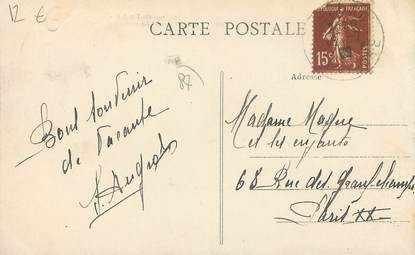 12 €
CARTE POSTALE
REPUBLIQUE FRANÇAISE
15c
POSTES
Adresse
87
Bons souvenirs
de Vacances
Madame
et les enfants
68 Rue des Grands champs
Paris XX